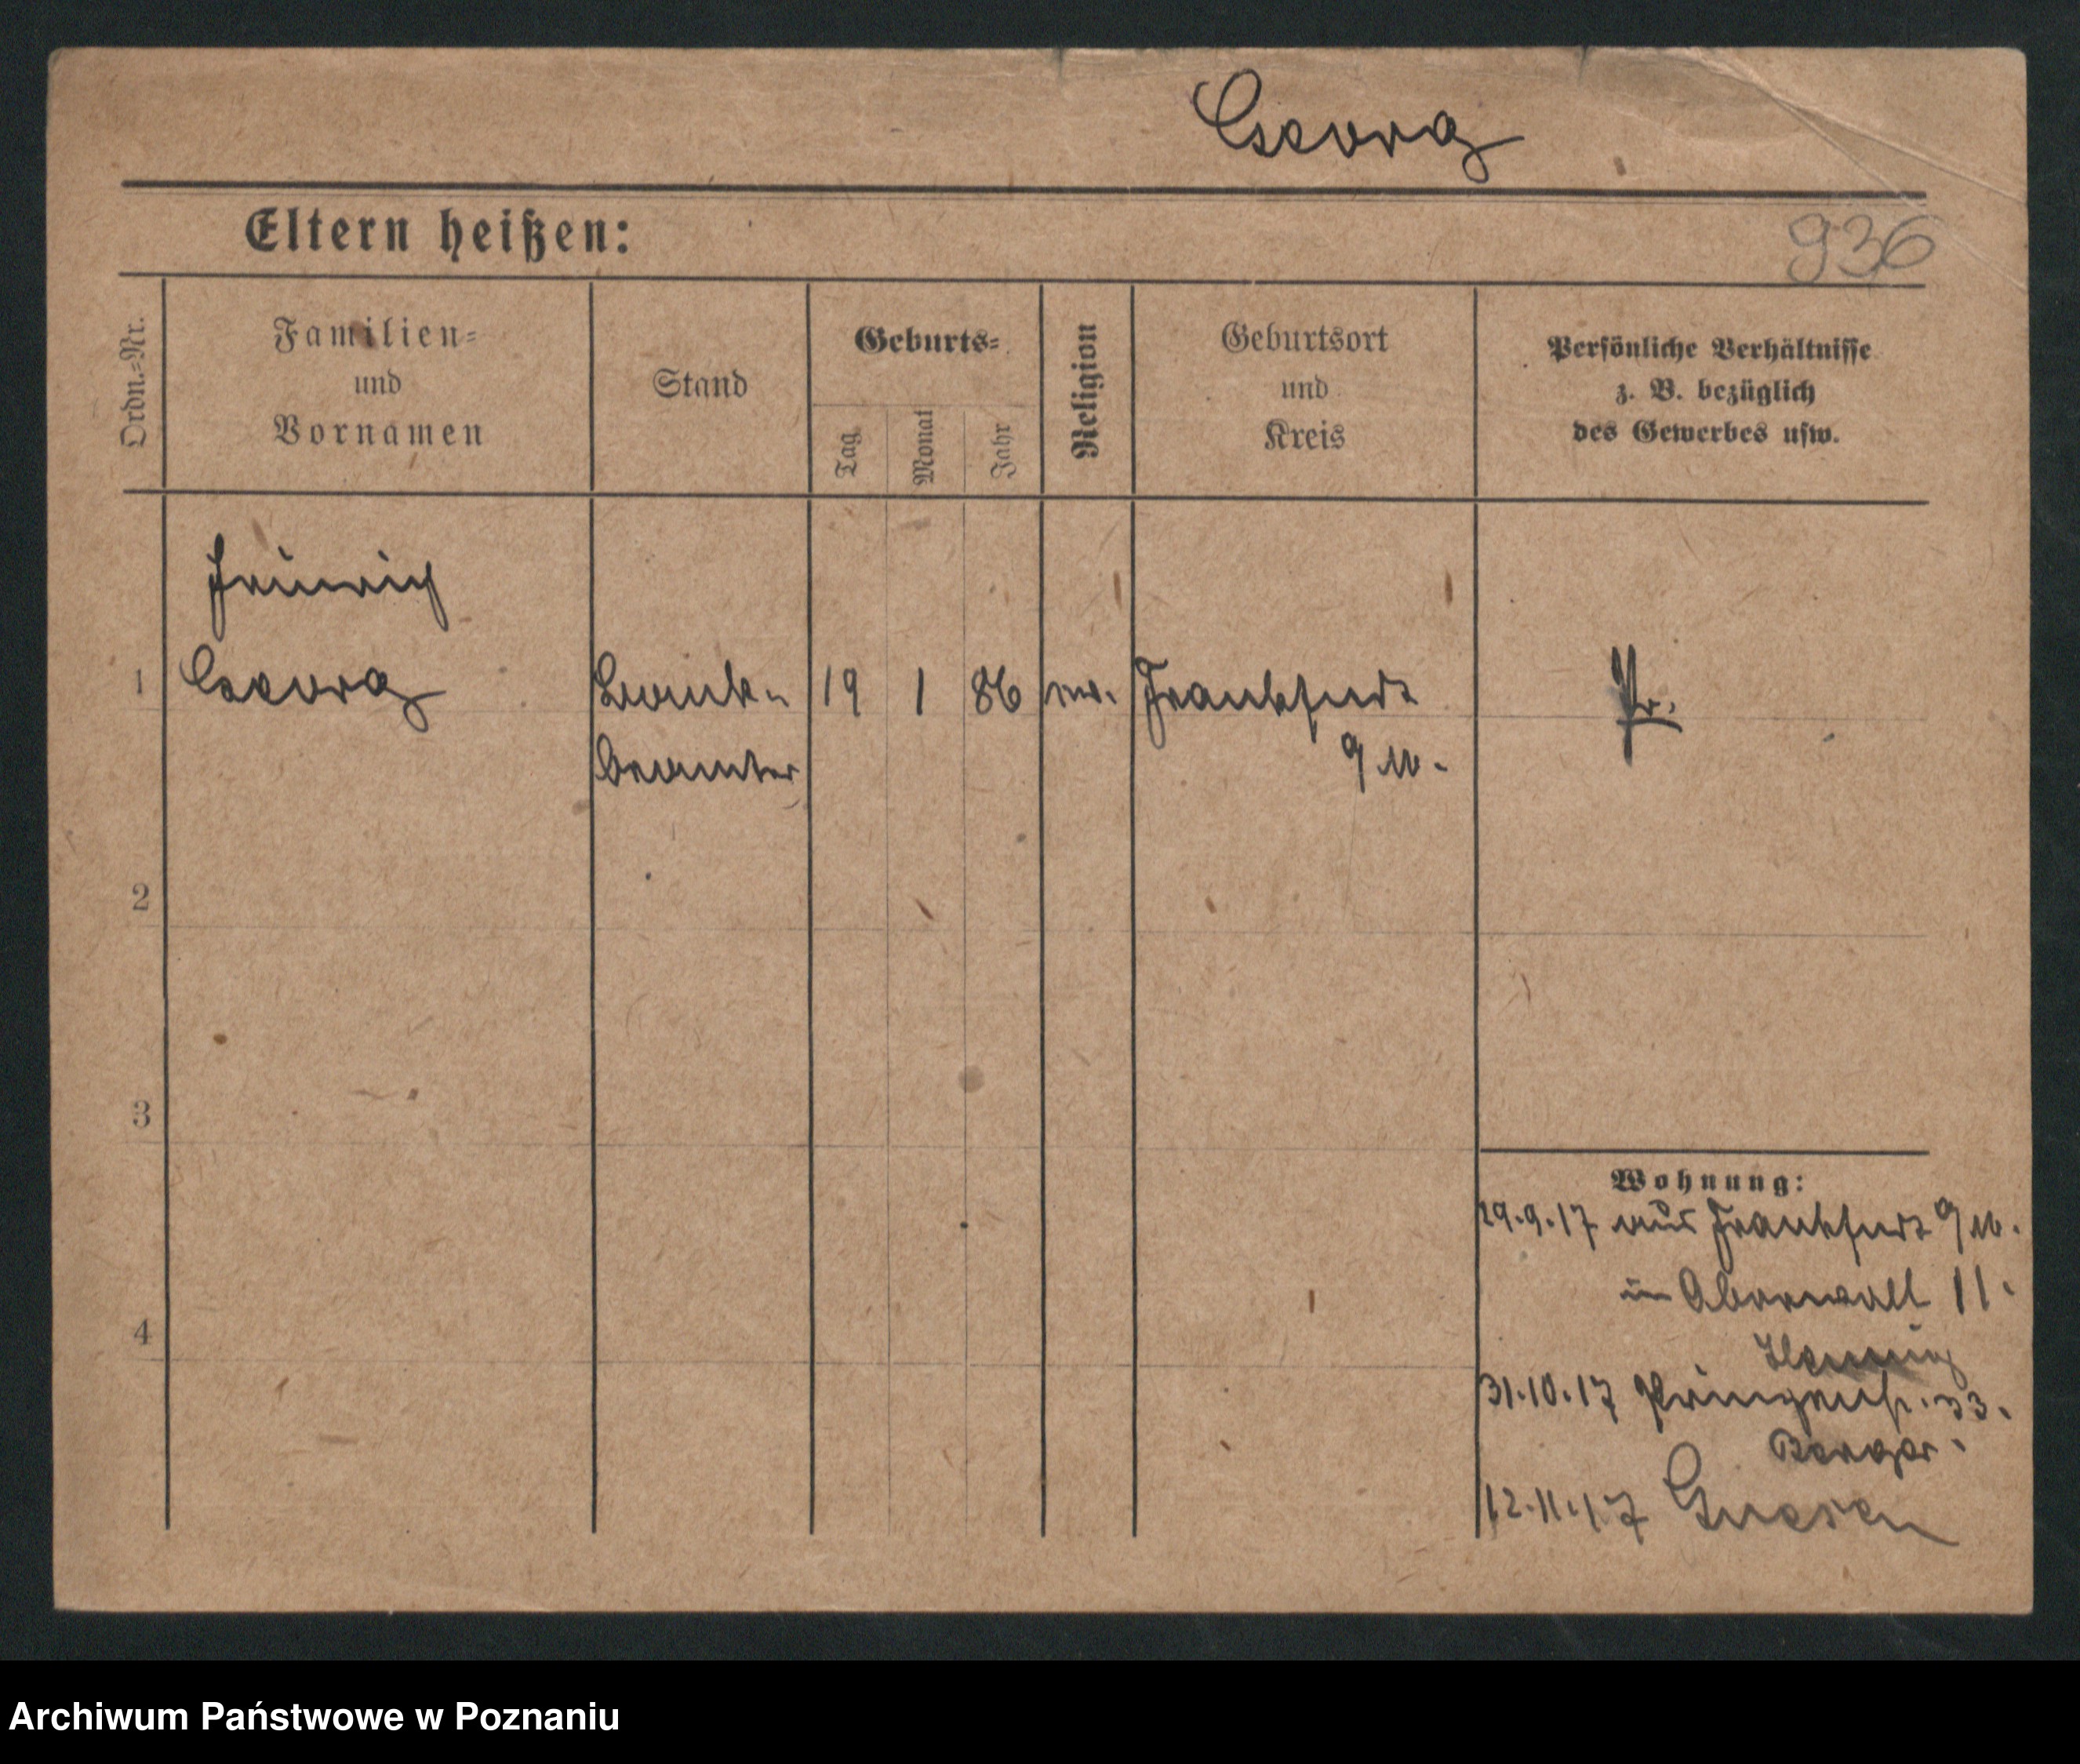 Georg
Eltern heißen:
936
Ordn.-Nr.
Familien-
und
Vornamen
Stand
Geburts-
Tag
Monat
Jahr
Religion
Geburtsort
und
Kreis
Persönliche Verhältnisse
z. B. bezüglich
des Gewerbes usw.
Heinrich
1 Georg Bank- 19 1 86 Frankfurt Pr.
beamter a/M.
2
3
4
Wohnung:
29.9.17 aus Frankfurt a/M.
in Oberwall 11.
31.10.17 Prinzenstr. 33.
Berger.
12.11.17 Gnesen
Archiwum Państwowe w Poznaniu